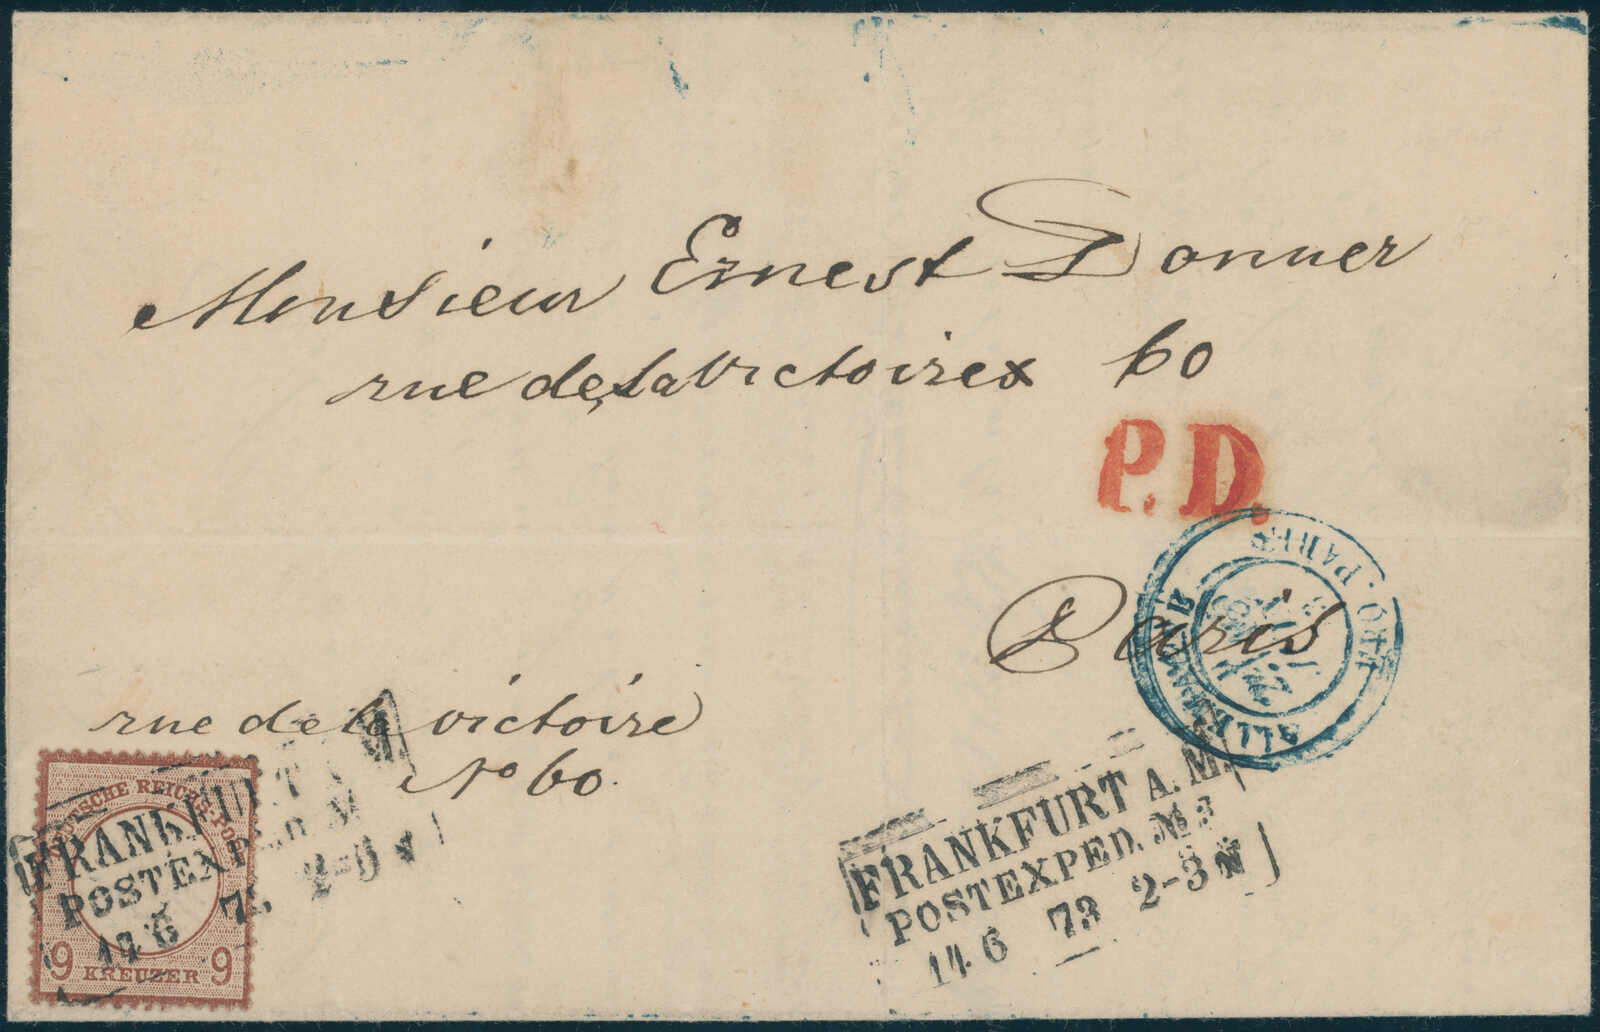 Monsieur Ernest Donner
rue de la Victoire 60
P.D.
Paris
ALLEMAGNE PARIS
rue de la victoire
No 60.
DEUTSCHE REICHS-POST
9 KREUZER 9
FRANKFURT
POSTEXPED.
14 6 73 2-3 N
FRANKFURT A. M.
POSTEXPED. № 3
14 6 73 2-3 N